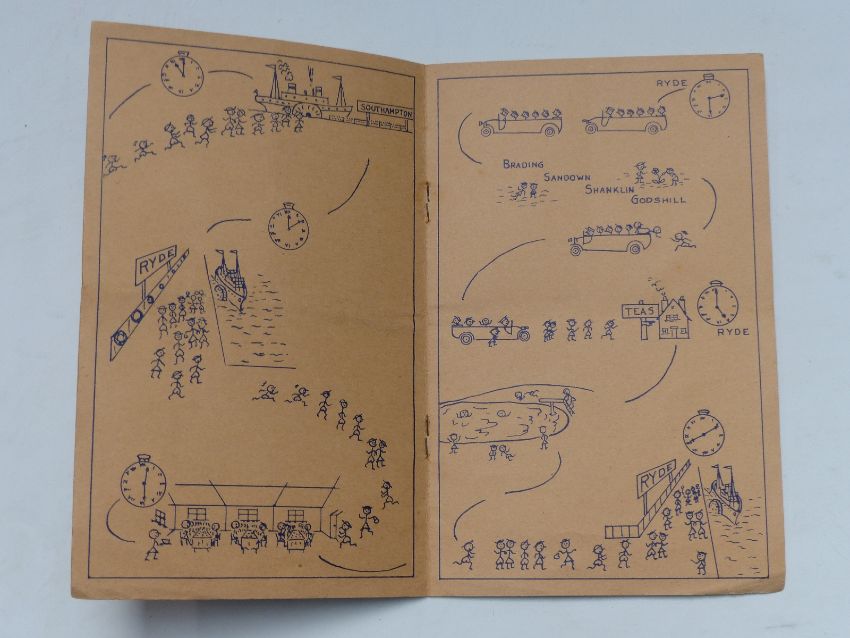 SOUTHAMPTON
RYDE
RYDE
BRADING
SANDOWN
SHANKLIN
GODSHILL
TEAS
RYDE
RYDE